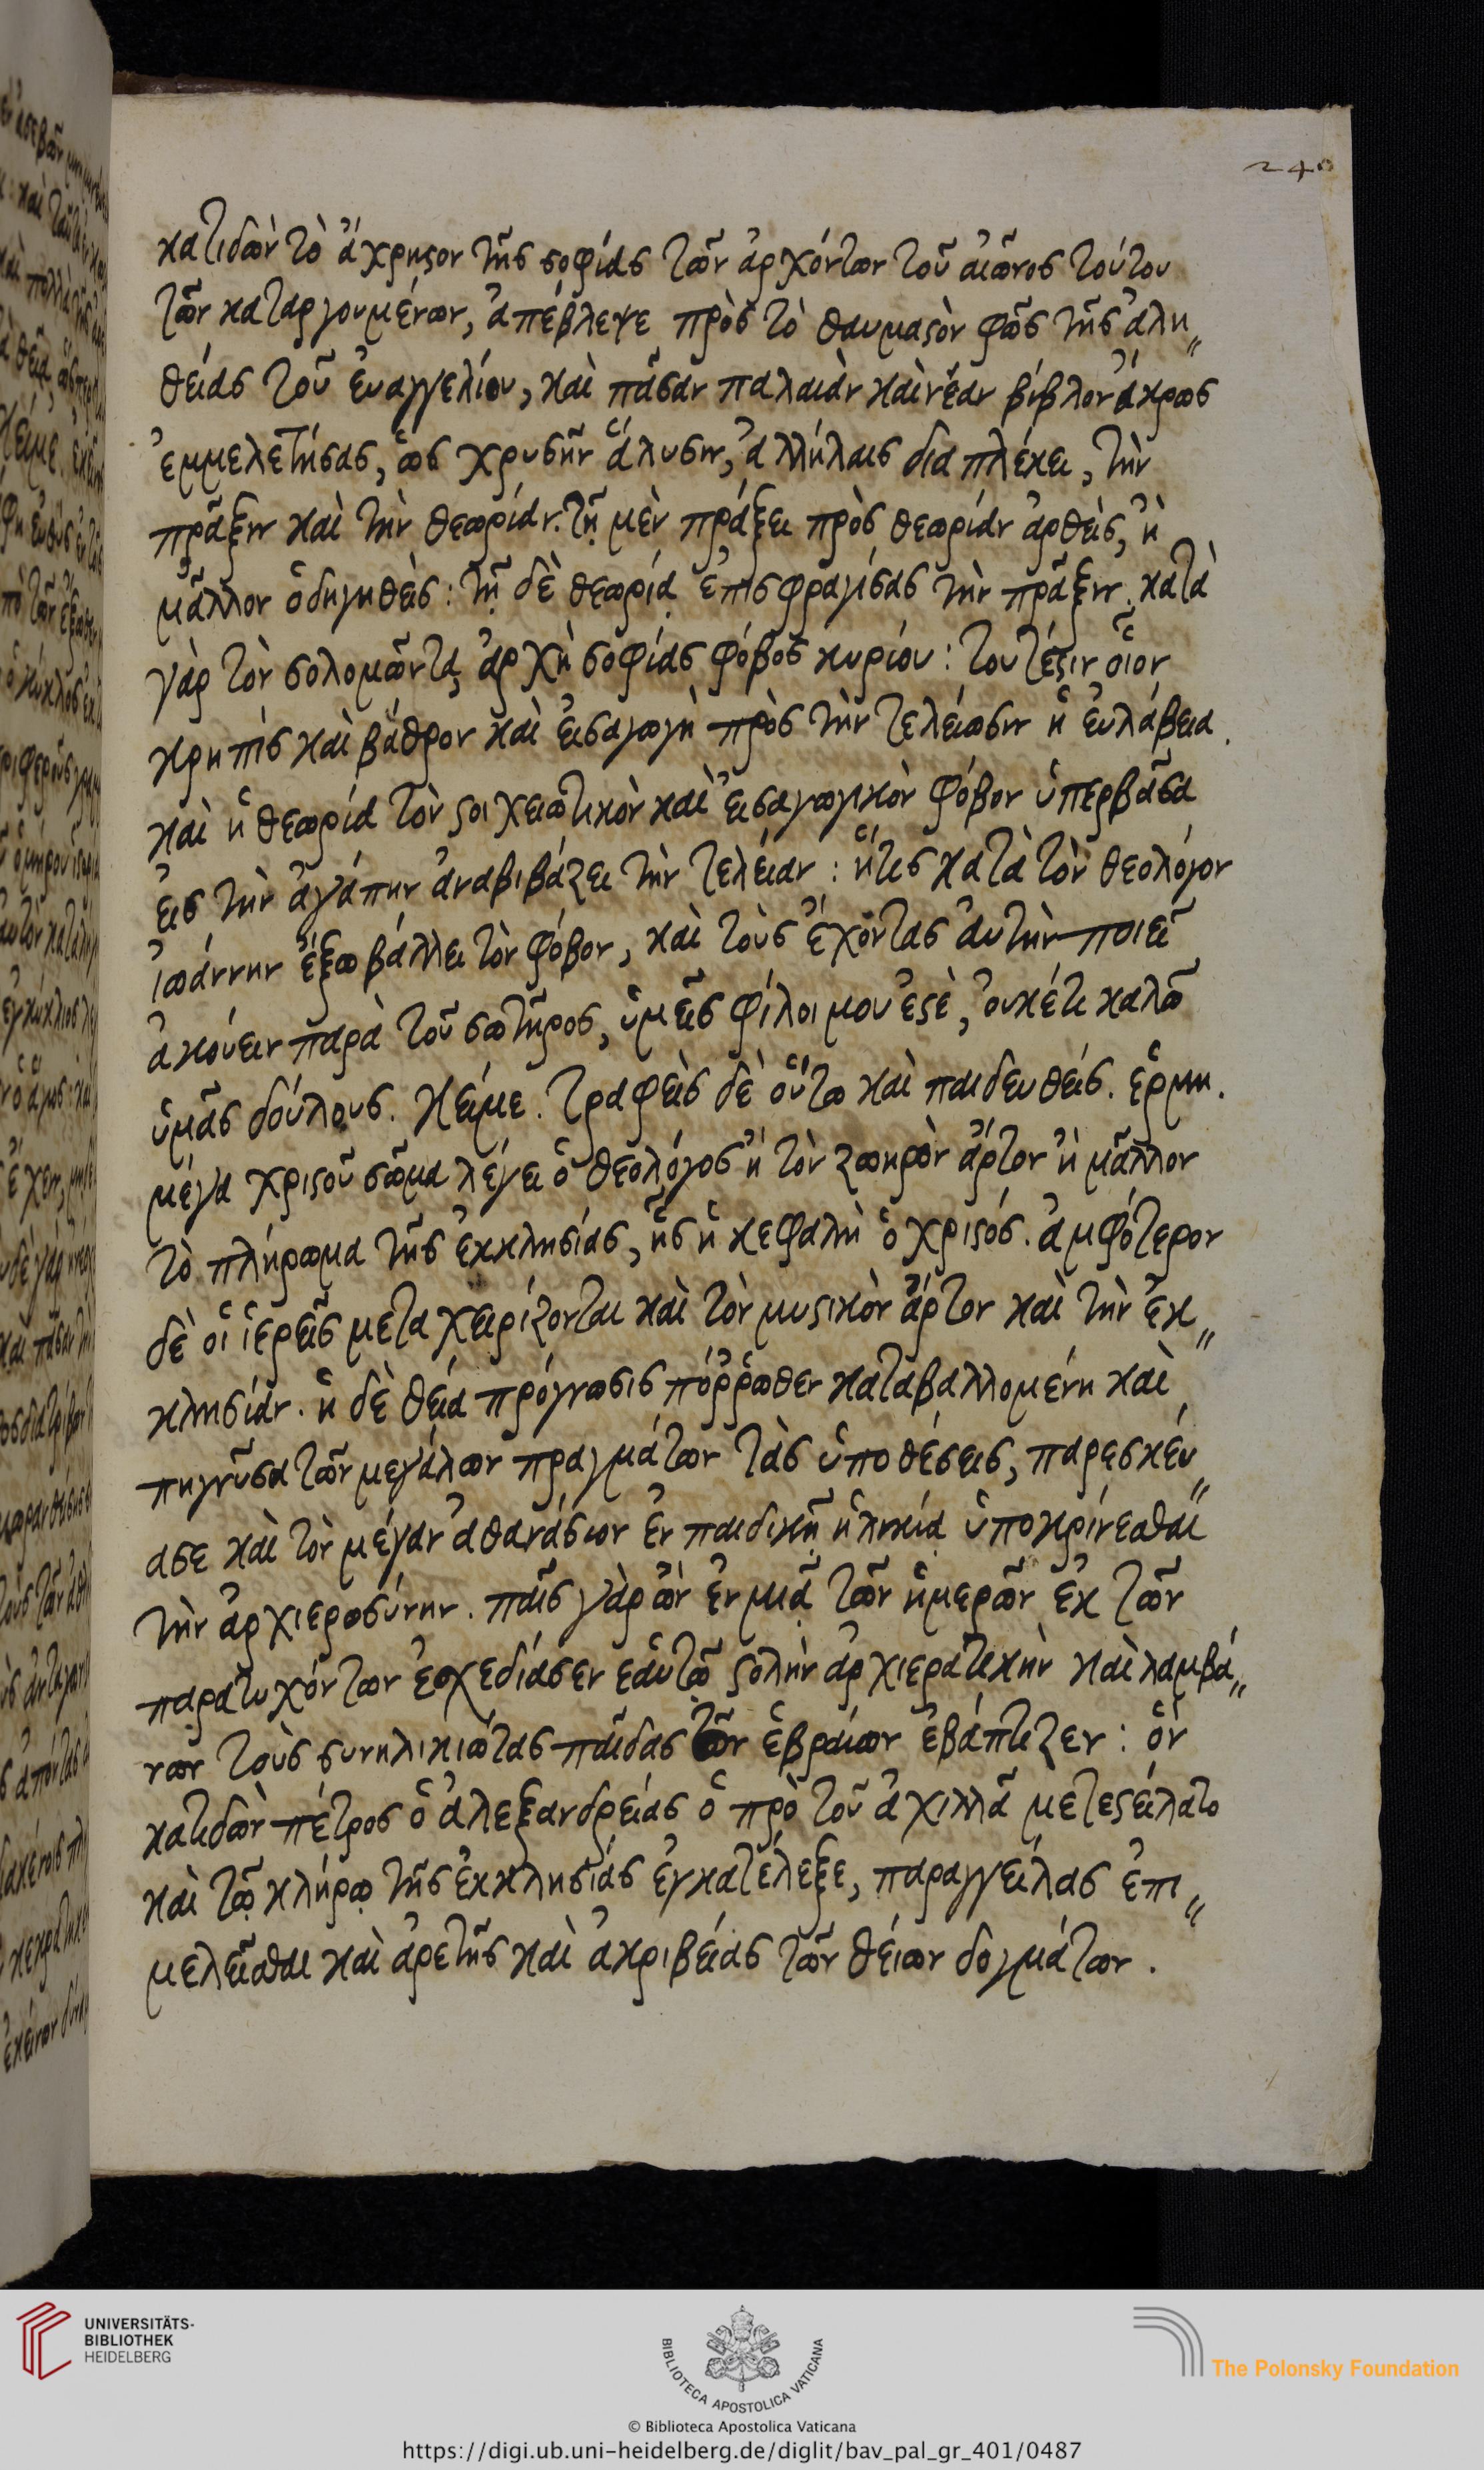 240
κατιδὼν τὸ ἄχρηστον τῆς σοφίας τῶν ἀρχόντων τοῦ αἰῶνος τούτου
τῶν καταργουμένων, ἀπέβλεψε πρὸς τὸ θαυμαστὸν φῶς τῆς ἀλη„
θείας τοῦ ἐυαγγελίου, καὶ πᾶσαν παλαιὰν καὶ νέαν βίβλον ἄκρως
ἐμμελετήσας, ὡς χρυσῆν ἅλυσιν, ἀλλήλαις διαπλέκει, τὴν
πρᾶξιν καὶ τὴν θεωρίαν. τῇ μὲν πράξει πρὸς θεωρίαν ἀρθεὶς, ἢ
μᾶλλον ὁδηγηθεὶς: τῇ δὲ θεωρίᾳ ἐπισφραγίσας τὴν πρᾶξιν. κατὰ
γὰρ τὸν σολομῶντα, ἀρχὴ σοφίας φόβος κυρίου: τουτέστιν οἷον
κρηπὶς καὶ βάθρον καὶ ἐισαγωγὴ πρὸς τὴν τελείωσιν ἡ ἐυλάβεια.
καὶ ἡ θεωρία τὸν στοιχειωτικὸν καὶ ἐισαγωγικὸν φόβον ὑπερβᾶσα
ἐις τὴν ἀγάπην ἀναβιβάζει τὴν τελείαν: ἥτις κατὰ τὸν θεολόγον
ἰωάννην ἔξω βάλλει τὸν φόβον, καὶ τοὺς ἔχοντας ἀυτὴν ποιεῖ
ἀκούειν παρὰ τοῦ σωτῆρος, ὑμεῖς φίλοι μου ἐστὲ, ὀυκέτι καλῶ
ὑμᾶς δούλους. κείμε. τραφεὶς δὲ οὕτω καὶ παιδευθείς. ἑρμη.
μέγα χριστοῦ σῶμα λέγει ὁ θεολόγος ἢ τὸν ζωηρὸν ἄρτον ἢ μᾶλλον
τὸ πλήρωμα τῆς ἐκκλησίας, ἧς ἡ κεφαλὴ ὁ χριστός. ἀμφότερον
δὲ οἱ ἱερεῖς μεταχειρίζονται καὶ τὸν μυστικὸν ἄρτον καὶ τὴν ἐκ„
κλησίαν. ἡ δὲ θεία πρόγνωσις πόῤῥωθεν καταβαλλομένη καὶ
πηγνῦσα τῶν μεγάλων πραγμάτων τὰς ὑποθέσεις, παρεσκέυ„
ασε καὶ τὸν μέγαν ἀθανάσιον ἐν παιδικῇ ἡλικίᾳ ὑποκρίνεσθαι
τὴν ἀρχιερωσύνην. παῖς γὰρ ὢν ἐν μιᾷ τῶν ἡμερῶν ἐκ τῶν
παρατυχόντων ἐσχεδίασεν ἑαυτῷ στολὴν ἀρχιερατικὴν καὶ λαμβά„
νων τοὺς συνηλικιώτας παῖδας τῶν ἑβραίων ἐβάπτιζεν: ὃν
κατιδὼν πέτρος ὁ ἀλεξανδρείας ὁ πρὸ τοῦ ἀχιλλᾶ μετεστείλατο
καὶ τῷ κλήρῳ τῆς ἐκκλησίας ἐγκατέλεξε, παραγγείλας ἐπι„
μελεῖσθαι καὶ ἀρετῆς καὶ ἀκριβείας τῶν θείων δογμάτων.
UNIVERSITÄTS-
BIBLIOTHEK
HEIDELBERG
BIBLIOTECA APOSTOLICA VATICANA
The Polonsky Foundation
© Biblioteca Apostolica Vaticana
https://digi.ub.uni-heidelberg.de/diglit/bav_pal_gr_401/0487